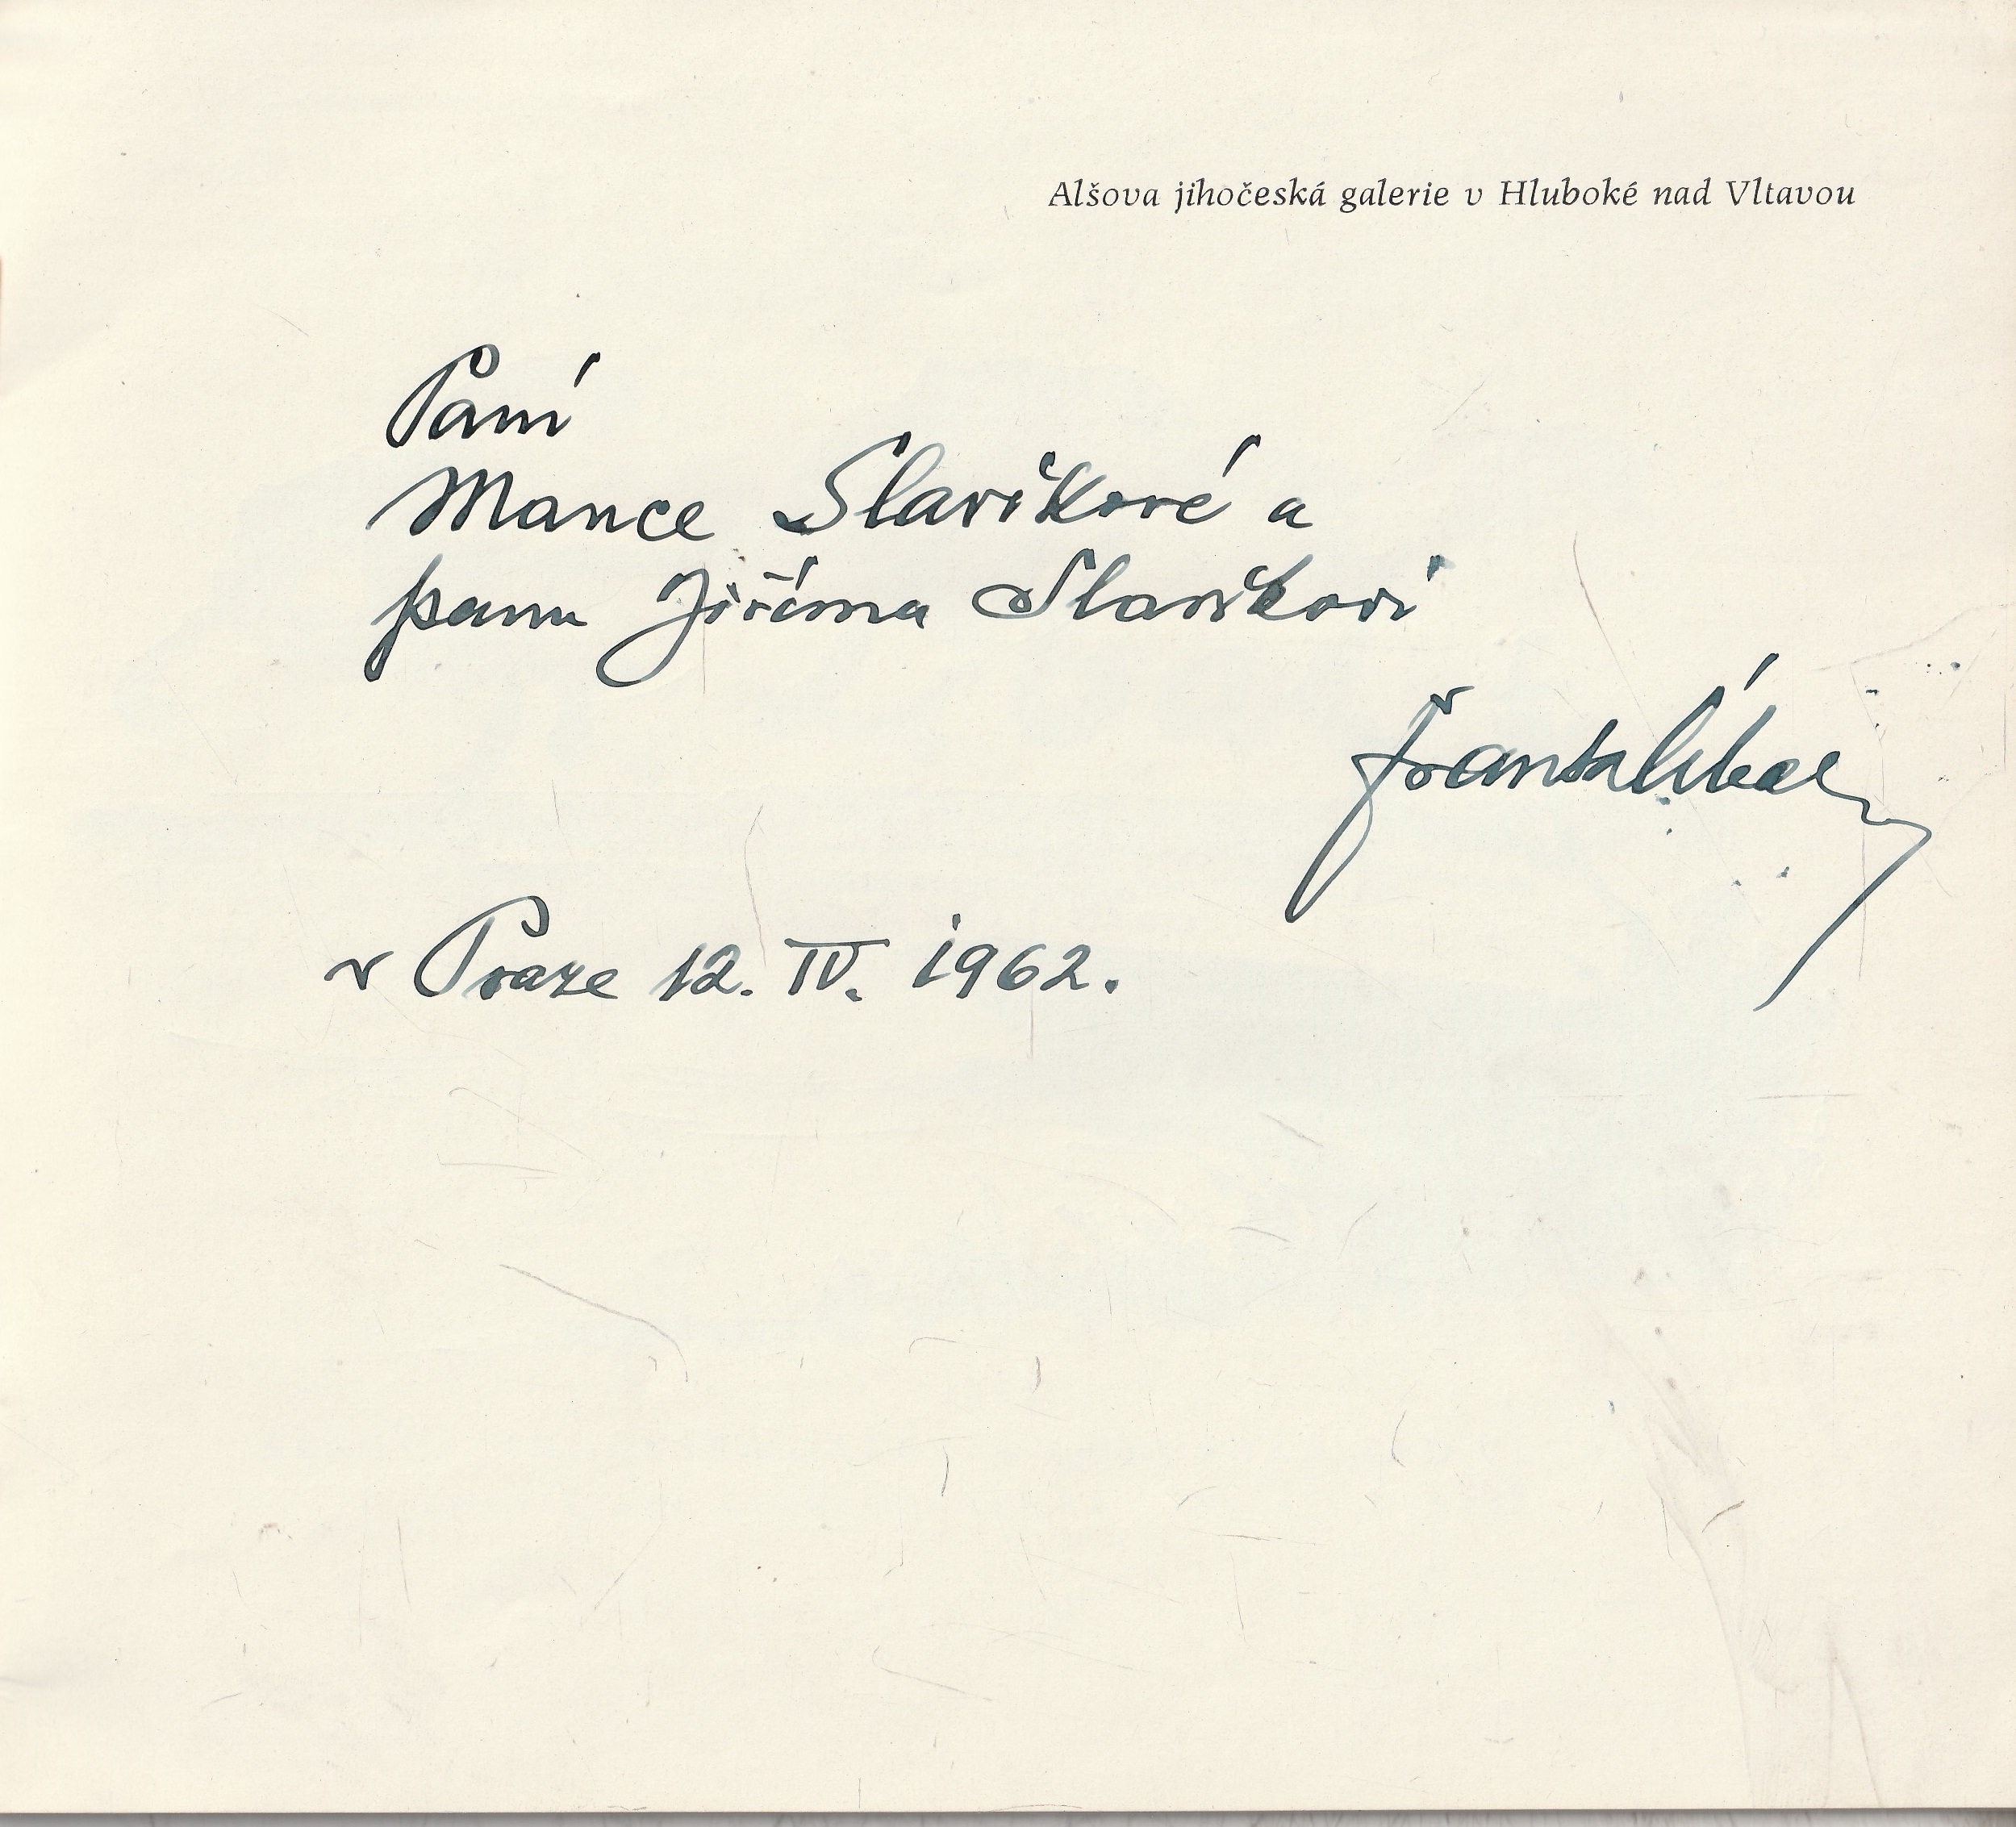 Alšova jihočeská galerie v Hluboké nad Vltavou
Paní
Mance Slavíkové a
panu Jiřímu Slavíkovi
v Praze 12. IV. 1962.